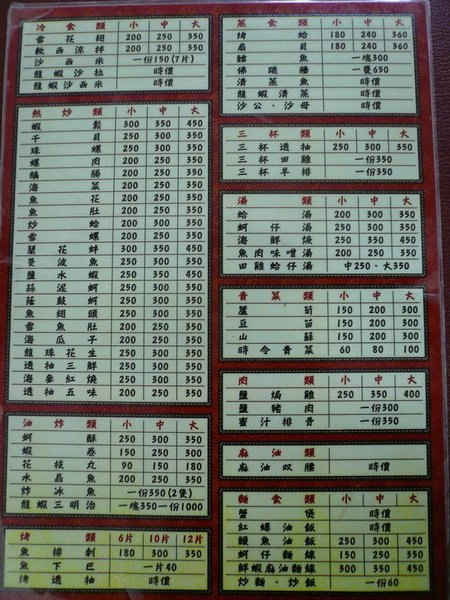 冷食類 小 中 大
雪花翅 200 250 350
軟西涼拌 200 250 350
沙西米 一份150(7片)
龍蝦沙拉 時價
龍蝦沙西米 時價
熱炒類 小 中 大
蝦鬆 300 350 450
干貝 250 300 350
珠螺 200 250 350
螺肉 200 250 350
腸 200 250 350
海菜 200 250 350
魚花 200 250 350
魚肚 200 250 350
炒蛤 200 250 350
雪螺 200 250 350
蘭花蚌 250 300 350
長波魚 250 300 350
鹽水蝦 250 300 350
蒜泥蚵 200 250 350
蔭鼓蚵 200 250 350
魚翅頭 200 250 350
雪魚肚 200 250 350
海瓜子 200 250 350
龍珠花生 250 300 350
透抽三鮮 250 300 350
海蔘紅燒 250 300 350
透抽五味 200 250 350
油炸類 小 中 大
蚵酥 250 300 350
蝦卷 150 250 300
花枝丸 90 150 180
水晶魚 200 250 350
炸冰魚 一份350(2隻)
龍蝦三明治 一塊350一份1000
烤類 6片 10片 12片
魚排剌 180 300 350
魚下巴 一片40
烤透抽 時價
蒸食類 小 中 大
烤蛤 180 240 360
扇貝 180 240 360
鱈魚 一塊300
佛跳牆 一甕650
清蒸魚 時價
龍蝦清蒸 時價
沙公、沙母 時價
三杯類 小 中 大
三杯透抽 250 300 350
三杯田雞 一份350
三杯羊排 一份350
湯類 小 中 大
蛤湯 200 250 350
蚵仔湯 200 300 350
海鮮燉 250 350 450
魚肉味噌湯 200 300 350
田雞蛤仔湯 中250、大350
青菜類 小 中 大
蘆筍 150 200 300
豆苗 150 200 300
山蘇 150 200 300
時令青菜 60 80 100
肉類 小 中 大
鹽焗雞 250 350 400
鹽豬肉 一份300
蜜汁排骨 一份350
麻油類
麻油双腰 時價
麵食類 小 中 大
蟹煲 時價
紅蟳油飯 時價
鰻魚油飯 250 300 450
蚵仔麵線 150 250 350
鮮蝦麻油麵線 300 350 450
炒麵、炒飯 一份60